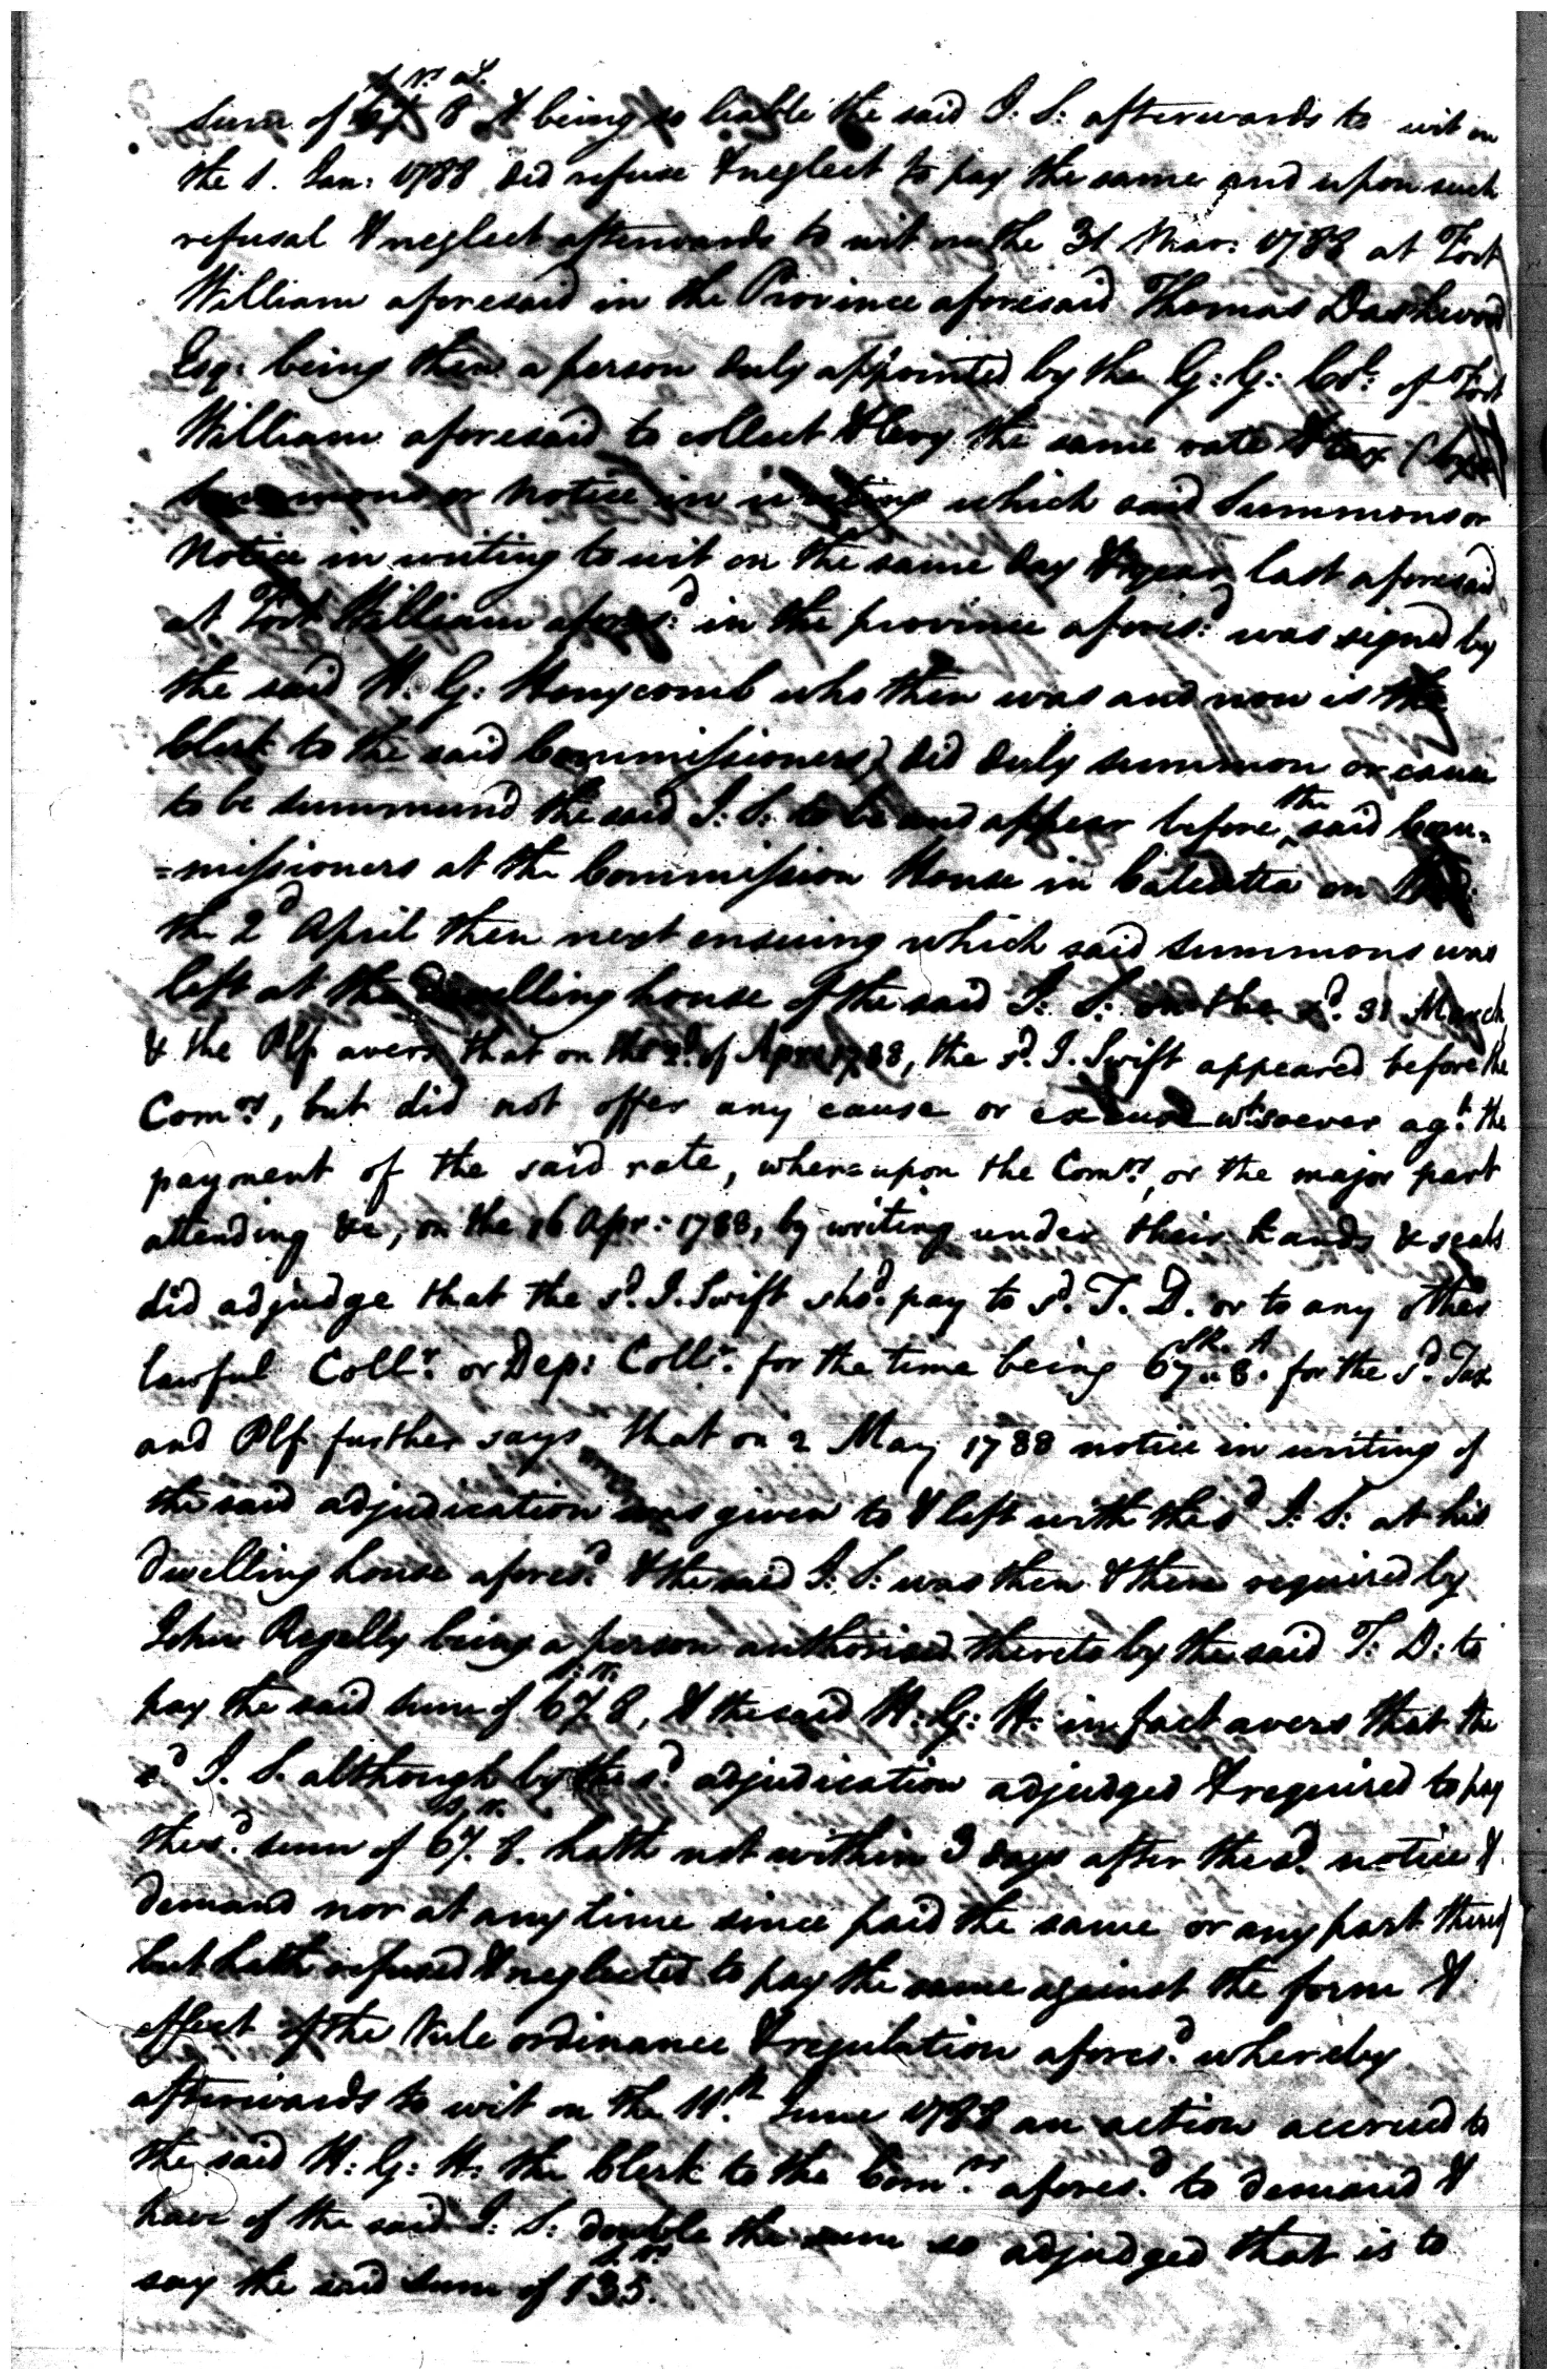 sum of 67 8 & being so liable the said I: S: afterwards to wit on
the 1. Jan: 1788 did refuse & neglect to pay the same and upon such
refusal & neglect afterwards to wit on the 31 Mar: 1788 at Fort
William aforesaid in the Province aforesaid Thomas Dashwood
Esq: being then a person duly appointed by the G: G: Cl. of Fort
William aforesaid to collect & levy the same rate & tax (by a
summons or Notice in writing which said Summons or
Notice in writing to wit on the same day & year last aforesaid
at Fort William afores:d in the province afores:d was signed by
the said H: G: Honycomb who then was and now is the
Clerk to the said Commissioners) did duly summon or cause
to be summund the said I: S: to be and appear before the said Com=
=missioners at the Commission House in Calcutta on
the 2d April then next ensuing which said summons was
left at the dwelling house of the said I: S: on the s.d 31 March
& the Plf avers that on the 2d of Apr 1788, the s.d I. Swift appeared before the
Com.rs, but did not offer any cause or excuse wt.soever ag.t the
payment of the said rate, whereupon the Com.rs, or the major part
attending &c, on the 16 Apr: 1788, by writing under their hands & seals
did adjudge that the s.d I. Swift sho.d pay to s.d T. D. or to any other
lawful Coll.r or Dep: Coll.r for the time being SR. A 67 " 8. for the s.d Tax
and Plf further says that on 2 May 1788 notice in writing of
the said adjudication was given to & left with the s.d I: S: at his
Dwelling house afores.d & the said I: S: was then & there required by
John being a person authorised thereto by the said T: D: to
pay the said sum of 67. 8, & the said H: G: H: in fact avers that the
s.d I. S. although by the s.d adjudication adjudged & required to pay
the s.d sum of 67. 8. hath not within 3 days after the s.d notice &
demand nor at any time since paid the same or any part thereof
but hath refused & neglected to pay the same against the form &
effect of the Rule ordinance & regulation afores.d whereby
afterwards to wit on the 11.th June 1788 an action accrued to
the said H: G: H: the Clerk to the Com.rs afores.d to demand &
have of the said I: S: double the sum so adjudged that is to
say the said sum of 135.